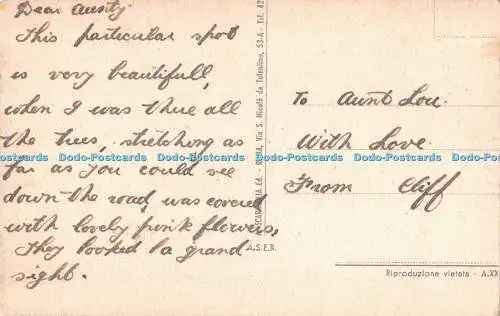 Dear Aunty,
This particular spot
is very beautifull,
when I was there all
the trees, stretching as
far as you could see
down the road, was covered
with lovely pink flowers,
They looked a grand
sight.
To Aunt Lou.
With Love.
From Cliff
Dodo-Postcards Dodo-Postcards Dodo-Postcards Dodo-Postcards Dodo-Postcards Dodo-Postcards
ROMA, Via S. Nicolò da Tolentino, 53-A - Tel. 42
A.S.E.R.
Riproduzione vietata - A.XX